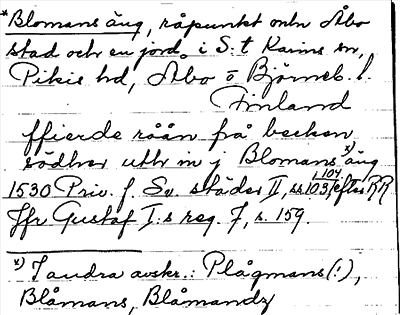 *Blomans äng, råpunkt mln Åbo
stad och en jord i S:t Karins sn,
Pikis hd, Åbo o Björneb. l.
Finland
ffierde råån frå becken
södher uthr in j Blomans x) äng
1530 Priv. f. Sv städer II, ss. 103, 104, efter RR
Jfr Gustaf I:s reg. 7, s. 159.
x) I andra avskr.: Plågmans (:),
Blåmans, Blåmandz